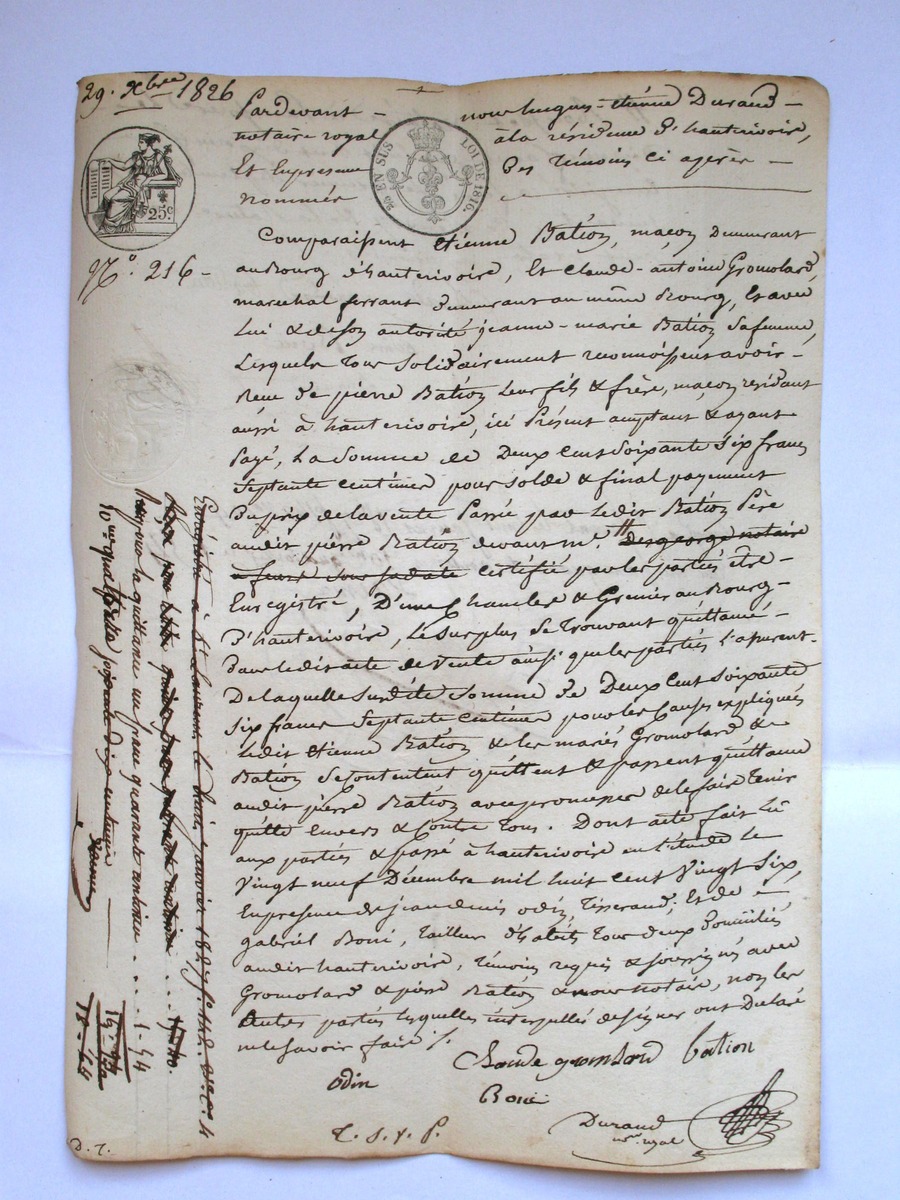 29. Xbre 1826
Pardevant - nous hugues-étienne Durand -
notaire royal à la résidence d'hauterivoire,
Et En présence Des témoins ci après -
nommés
EN SUS
LOI DE 1816.
25c
N.o 216 -
Comparaissent Etienne Bation, maçon Demeurant
au Bourg d'hauterivoire, Et Claude-antoine Gromolard,
marechal ferrant demeurant au même Bourg, Et avec
Lui & de son autorité jeanne-marie Bation sa femme,
Lesquels tous solidairement reconnoissent avoir -
Reçu de pierre Bation Leur fils & frère, maçon residant
aussi à hauterivoire, ici Présent acceptant & ayant
Payé, La Somme de Deux Cent Soixante Six francs
Septante Centimes pour solde & final payement
Du prix de la vente Passée par ledit Bation Père
audit pierre Bation devant me. Desgeorge notaire
sous sa date certifié par les parties être -
Enregistré, D'une Chambre & Grenier au Bourg -
D'hauterivoire, Le Surplus se trouvant quittancé -
dans ledit acte de vente ainsi que les parties l'assurent.
De laquelle Susdite Somme de Deux Cent Soixante
Six francs Septante Centimes pour les Causes expliquées
Ledit Etienne Bation & les mariés Gromolard &
Bation Se Contentent quittent & passent quittance
audit pierre Bation avec promesse de le faire tenir
quitte Envers & Contre tous. Dont acte fait Lu
aux parties & passé à hauterivoire en l'étude le
Vingt neuf Décembre mil huit cent Vingt Six,
En présence de jean denis odin, Tisserand, Et de -
gabriel Boni, tailleur d'habits tous deux Domiciliés
audit hauterivoire, témoins requis & soussignés avec
Gromolard & pierre Bation & nous notaire, non les
Autres parties lesquelles interpellées de signer ont Déclaré
ne le savoir faire ./.
Claude gromolard bation
odin Boni
Durand
nre. royal
T. S. V. P.
D. T.
Enregistré à St Laurent le janvier 1827 fo. 118
pour la quittance un franc quarante quatre centimes . . . 1-44
10me quatorze centimes